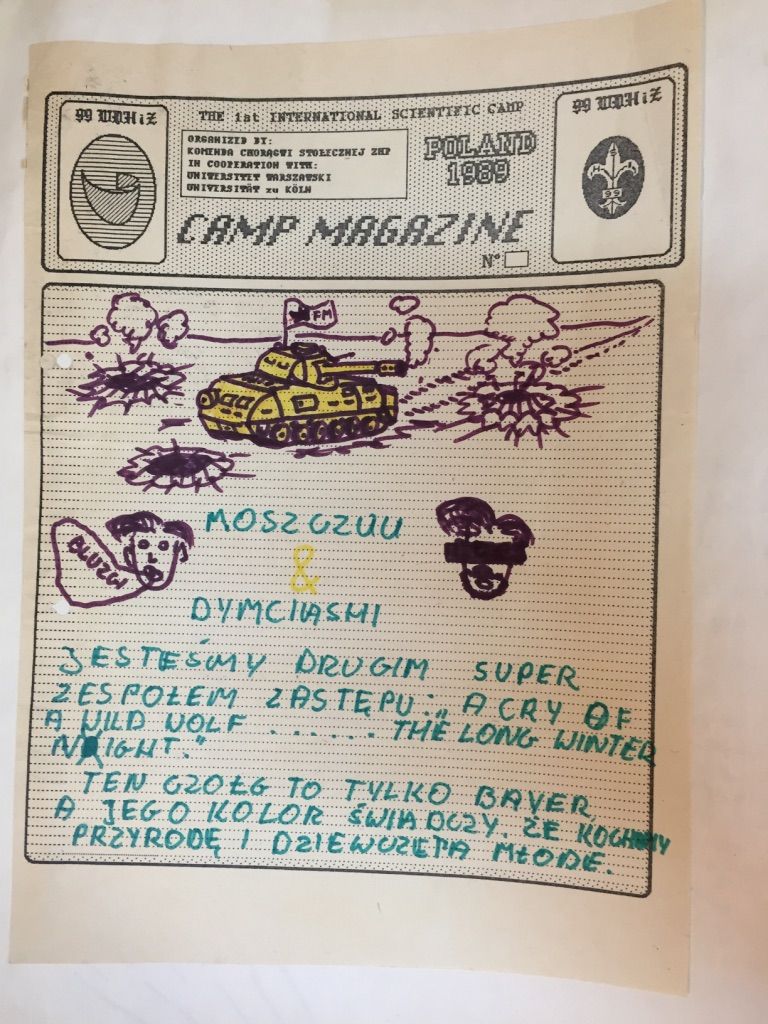 99 WDHiZ
THE 1st INTERNATIONAL SCIENTIFIC CAMP
99 WDHiZ
ORGANIZED BY:
KOMENDA CHORĄGWI STOŁECZNEJ ZHP
IN COOPERATION WITH:
UNIWERSYTET WARSZAWSKI
UNIVERSITÄT zu KÖLN
POLAND
1989
99
CAMP MAGAZINE
N°
FM
BLUZGI
MOSZCZUU
&
DYMCIASHI
JESTEŚMY DRUGIM SUPER
ZESPOŁEM ZASTĘPU: „A CRY OF
A WILD WOLF ...... THE LONG WINTER
NIGHT."
TEN CZOŁG TO TYLKO BAYER,
A JEGO KOLOR ŚWIADCZY, ŻE KOCHAMY
PRZYRODĘ I DZIEWCZĘTA MŁODE.